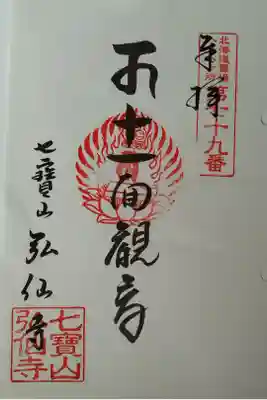 奉拝
北海道霊場
第二十九番
十一面観音
七寶山 弘仙寺
七寶山
弘仙寺